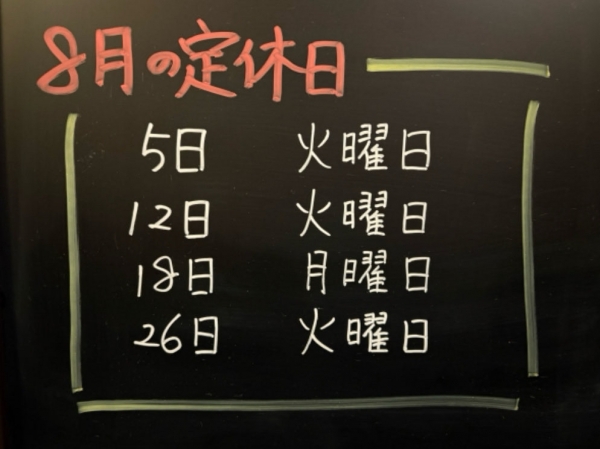 8月の定休日
5日 火曜日
12日 火曜日
18日 月曜日
26日 火曜日